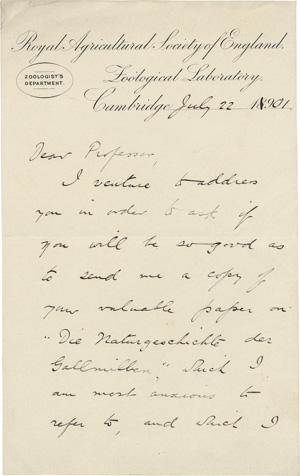 Royal Agricultural Society of England.
ZOOLOGIST'S
DEPARTMENT.
Zoological Laboratory,
Cambridge, July 22 1901.
Dear Professor,
I venture to address
you in order to ask if
you will be so good as
to send me a copy of
your valuable paper on
"Die Naturgeschichte der
Gallmilben," which I
am most anxious to
refer to, and which I